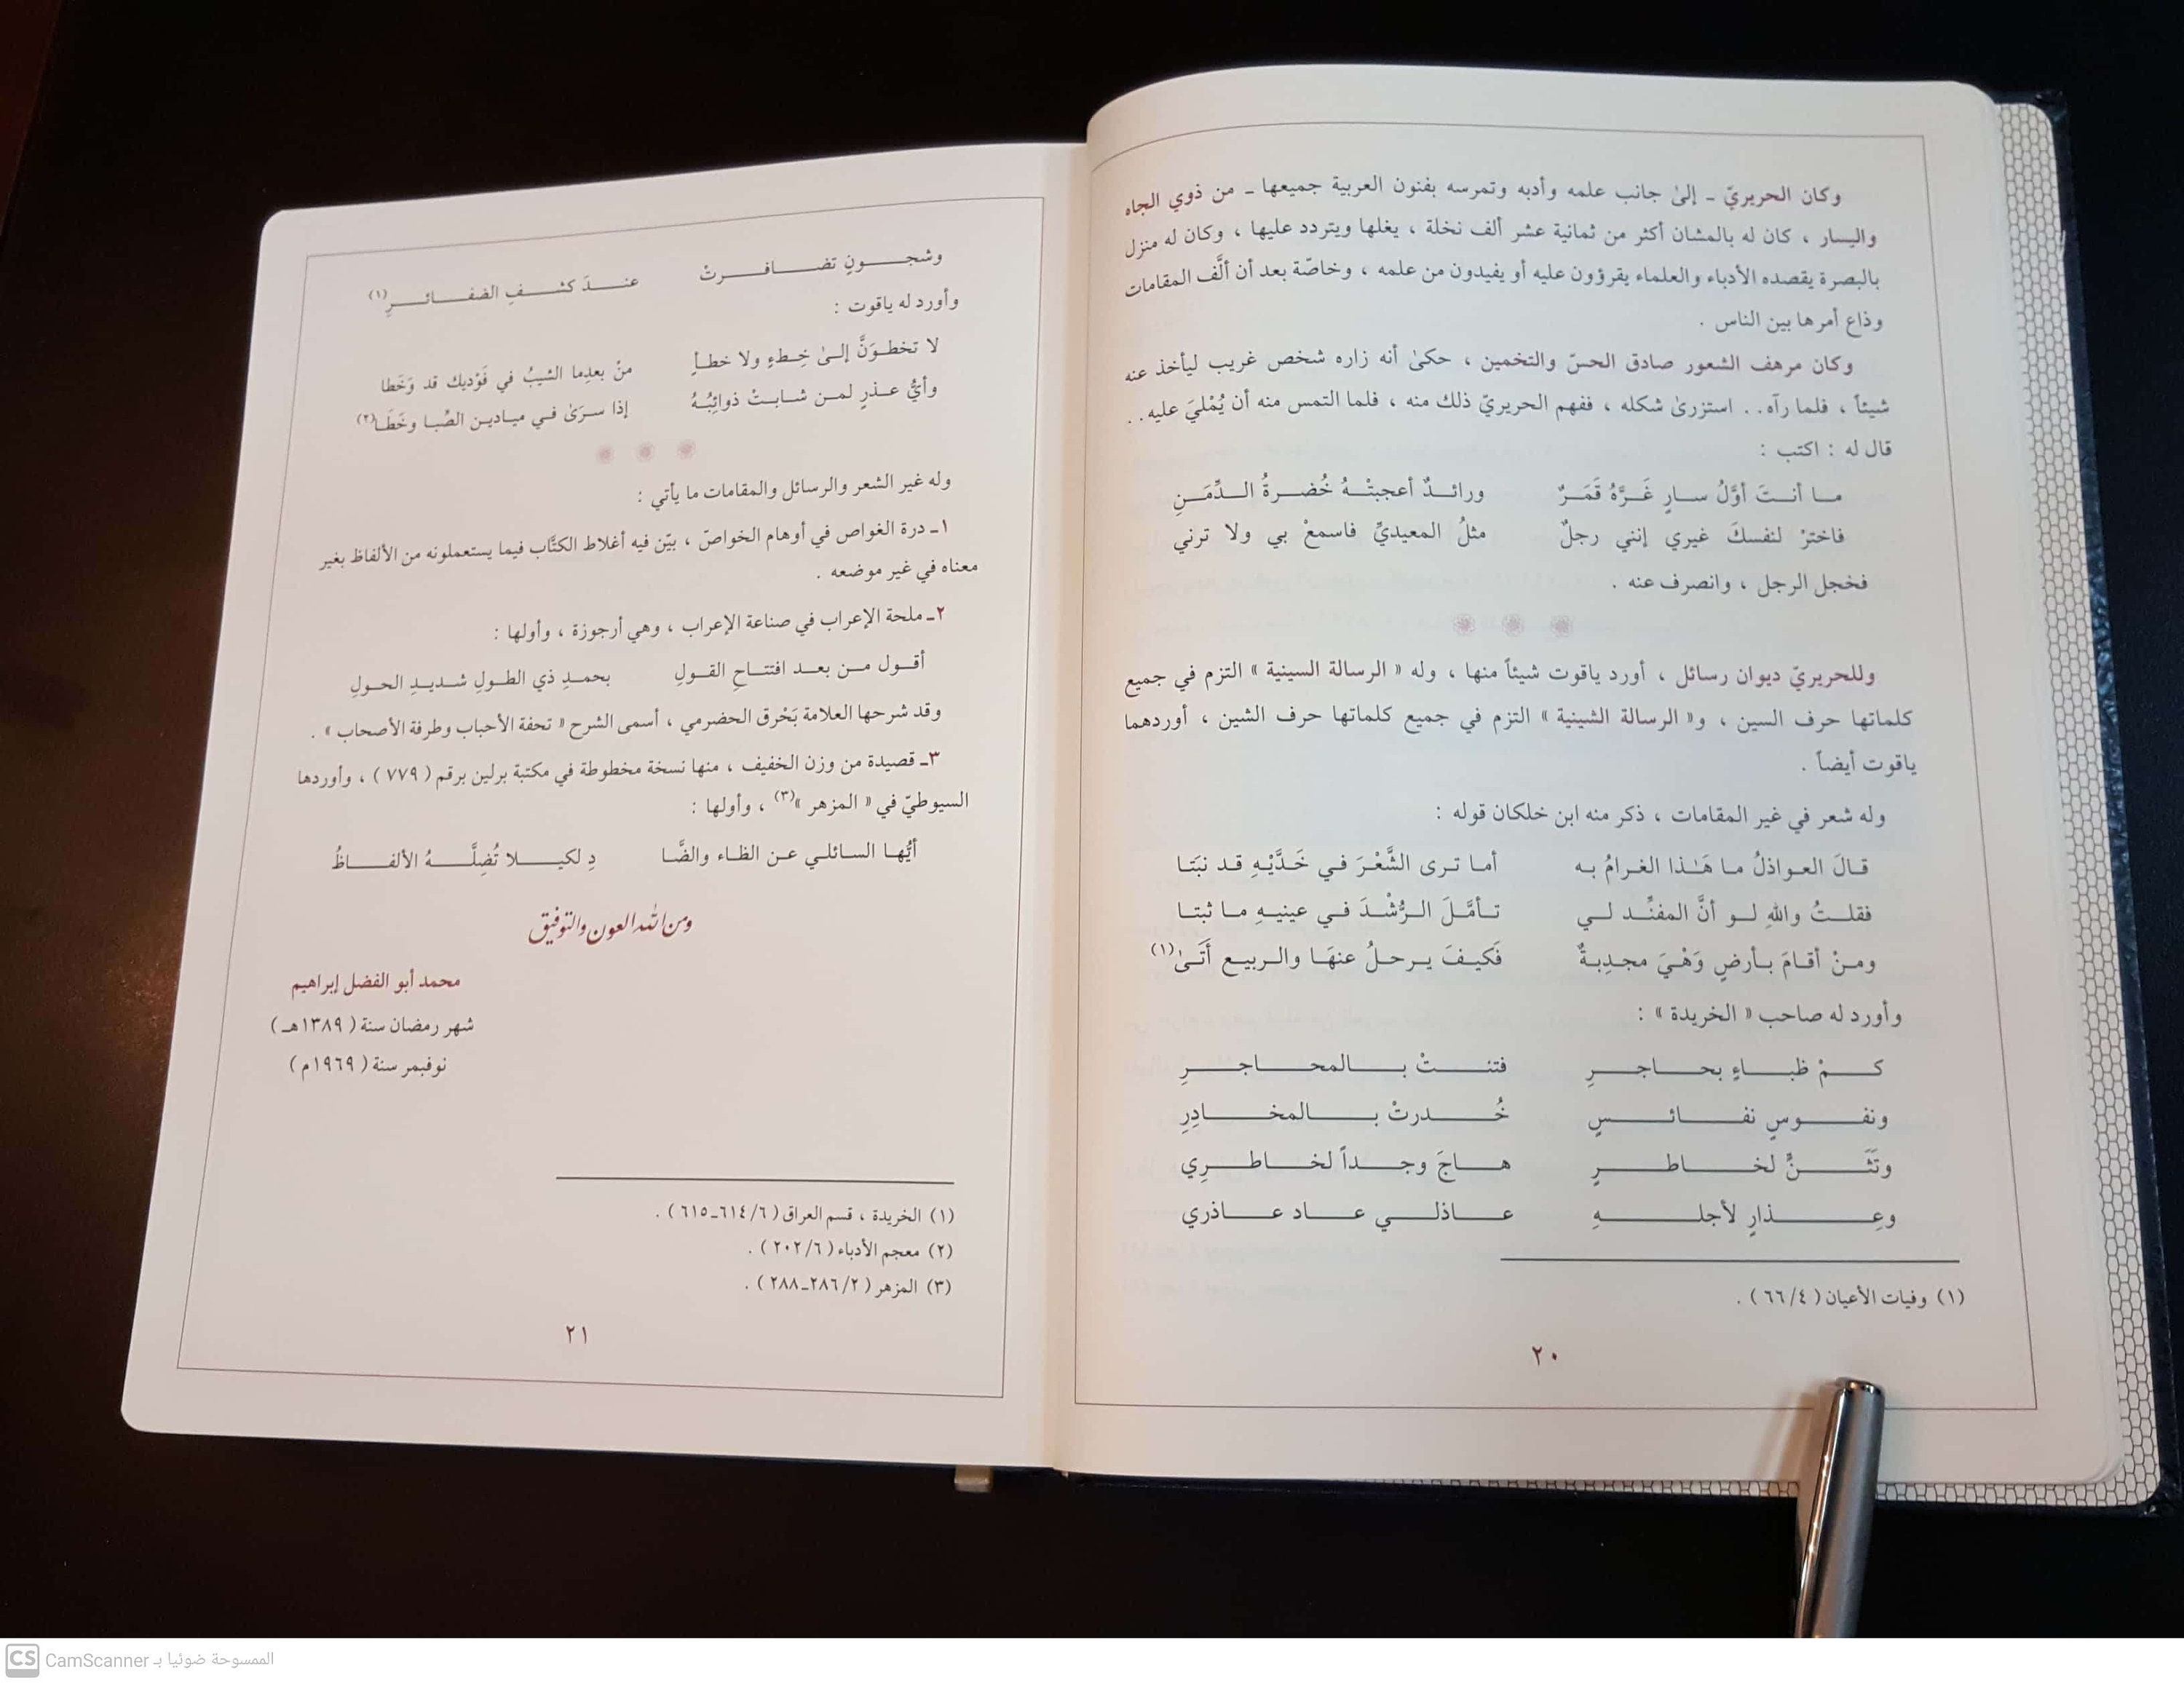 وكان الحريريّ ـ إلىٰ جانب علمه وأدبه وتمرسه بفنون العربية جميعها ـ من ذوي الجاه
واليسار ، كان له بالمشان أكثر من ثمانية عشر ألف نخلة ، يغلها ويتردد عليها ، وكان له منزل
بالبصرة يقصده الأدباء والعلماء يقرؤون عليه أو يفيدون من علمه ، وخاصّة بعد أن ألَّف المقامات
وذاع أمرها بين الناس .
وكان مرهف الشعور صادق الحسّ والتخمين ، حكىٰ أنه زاره شخص غريب ليأخذ عنه
شيئاً ، فلما رآه . . استزرىٰ شكله ، ففهم الحريريّ ذلك منه ، فلما التمس منه أن يُمْليَ عليه . .
قال له : اكتب :
مـا أنـتَ أوَّلُ سـارٍ غَـرَّهُ قَمَـرٌ ورائـدٌ أعجبتْـهُ خُضـرةُ الـدِّمَـنِ
فاخترْ لنفسكَ غيري إنني رجلٌ مثلُ المعيديِّ فاسمعْ بي ولا ترني
فخجل الرجل ، وانصرف عنه .
وللحريريّ ديوان رسائل ، أورد ياقوت شيئاً منها ، وله « الرسالة السينية » التزم في جميع
كلماتها حرف السين ، و« الرسالة الشينية » التزم في جميع كلماتها حرف الشين ، أوردهما
ياقوت أيضاً .
وله شعر في غير المقامات ، ذكر منه ابن خلكان قوله :
قـالَ العـواذلُ مـا هَـٰذا الغـرامُ بـه أمـا تـرى الشَّعْـرَ فـي خَـدَّيْـهِ قـد نبَتـا
فقلـتُ واللهِ لـو أنَّ المفنِّـد لـي تـأمَّـلَ الـرُّشْـدَ فـي عينيـهِ مـا ثبتـا
ومـنْ أقـامَ بـأرضٍ وَهْـيَ مجـدِبـةٌ فَكيـفَ يـرحـلُ عنهَـا والـربيـع أَتَـىٰ(١)
وأورد له صاحب « الخريدة » :
كـمْ ظبـاءٍ بحـاجـرِ فتنـتْ بـالمحـاجـرِ
ونفـوسٍ نفـائـسٍ خُـدرتْ بـالمخـادِرِ
وتَثَـنٍّ لخـاطـرٍ هـاجَ وجـداً لخـاطـرِي
وعِـذارٍ لأجلـهِ عـاذلـي عـاد عـاذري
(١) وفيات الأعيان ( ٤/ ٦٦ ) .
٢٠
وشجـونٍ تضـافـرتْ عنـدَ كشـفِ الضفـائـرِ(١)
وأورد له ياقوت :
لا تخطـوَنَّ إلـىٰ خِـطءٍ ولا خطـأٍ منْ بعدِما الشيبُ في فَوْديك قد وَخَطا
وأيُّ عـذرٍ لمـن شـابـتْ ذوائِبُـهُ إذا سـرَىٰ فـي ميـاديـن الصِّبـا وخَطَـا(٢)
وله غير الشعر والرسائل والمقامات ما يأتي :
١ـ درة الغواص في أوهام الخواصّ ، بيّن فيه أغلاط الكتَّاب فيما يستعملونه من الألفاظ بغير
معناه في غير موضعه .
٢ـ ملحة الإعراب في صناعة الإعراب ، وهي أرجوزة ، وأولها :
أقـول مـن بعـد افتتـاحِ القـولِ بحمـدِ ذي الطـولِ شـديـدِ الحـولِ
وقد شرحها العلامة بَحْرق الحضرمي ، أسمى الشرح « تحفة الأحباب وطرفة الأصحاب » .
٣ـ قصيدة من وزن الخفيف ، منها نسخة مخطوطة في مكتبة برلين برقم ( ٧٧٩ ) ، وأوردها
السيوطيّ في « المزهر »(٣) ، وأولها :
أيُّهـا السـائلـي عـن الظـاء والضَّـا دِ لكيـلا تُضِلَّـهُ الألفـاظُ
ومن الله العون والتوفيق
محمد أبو الفضل إبراهيم
شهر رمضان سنة ( ١٣٨٩هـ )
نوفبمر سنة ( ١٩٦٩م )
(١) الخريدة ، قسم العراق ( ٦/ ٦١٤ـ ٦١٥ ) .
(٢) معجم الأدباء ( ٦/ ٢٠٢ ) .
(٣) المزهر ( ٢/ ٢٨٦ـ ٢٨٨ ) .
٢١
CS CamScanner الممسوحة ضوئيا بـ